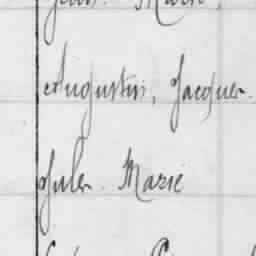 Jean. Marie,
Augustin, Jacques.
Jules. Marie